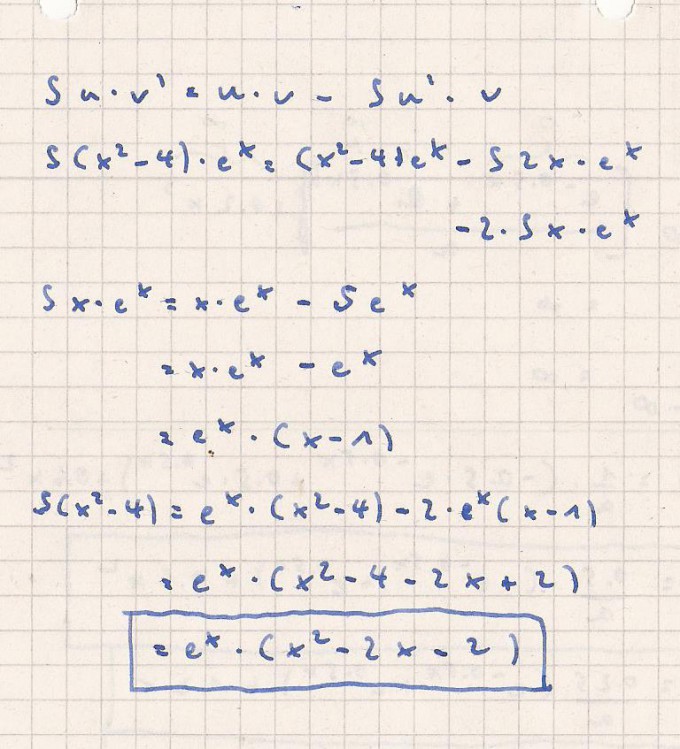 ∫ u · v' = u · v - ∫ u' · v
∫ (x² - 4) · eˣ = (x² - 4) eˣ - ∫ 2x · eˣ
- 2 · ∫ x · eˣ
∫ x · eˣ = x · eˣ - ∫ eˣ
= x · eˣ - eˣ
= eˣ · (x - 1)
∫(x² - 4) = eˣ · (x² - 4) - 2 · eˣ (x - 1)
= eˣ · (x² - 4 - 2x + 2)
= eˣ · (x² - 2x - 2)